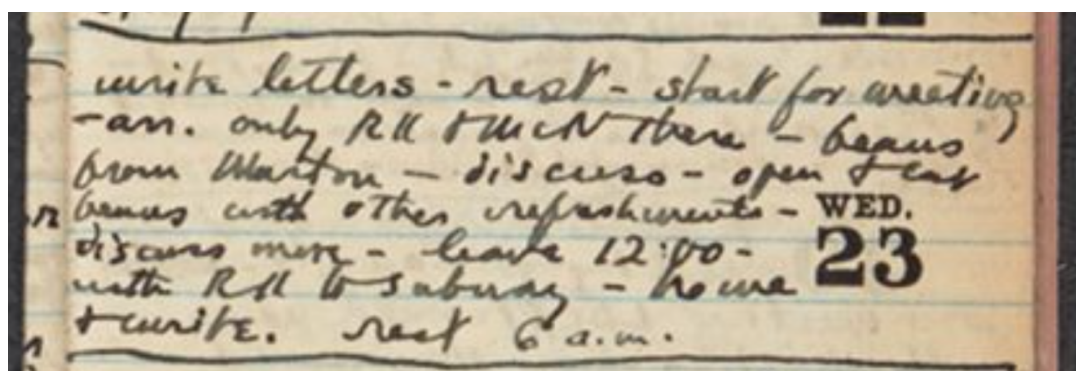 write letters - rest - start for meeting
- arr. only RK & McN there - beans
from Morton - discuss - open & eat
beans with other refreshments - WED.
discuss more - leave 12:00 - 23
with RK to Subway - home
& write. rest 6 a.m.